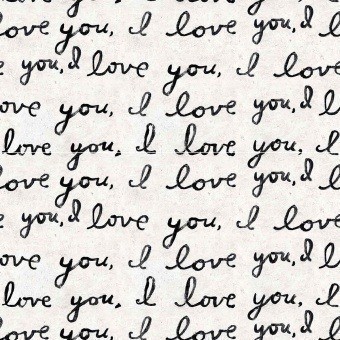 love you, I love you, I l
e you, I love you, I love
ove you, I love you, I l
love you. I love you, I
love you, I love you, I l
e you, I love you, I love
ove you, I love you, I l
love you. I love you, I
love you, I love you, I l